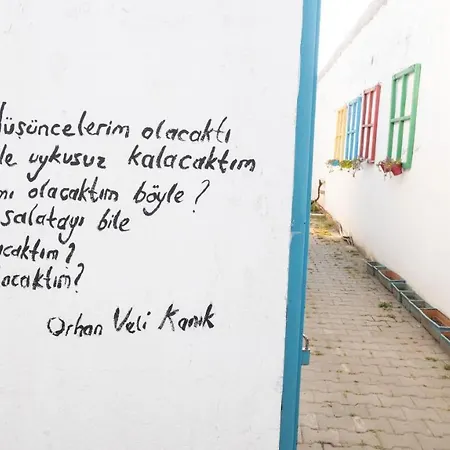 düşüncelerim olacaktı
le uykusuz kalacaktım
mı olacaktım böyle?
salatayı bile
acaktım?
lacaktım?
Orhan Veli Kanık